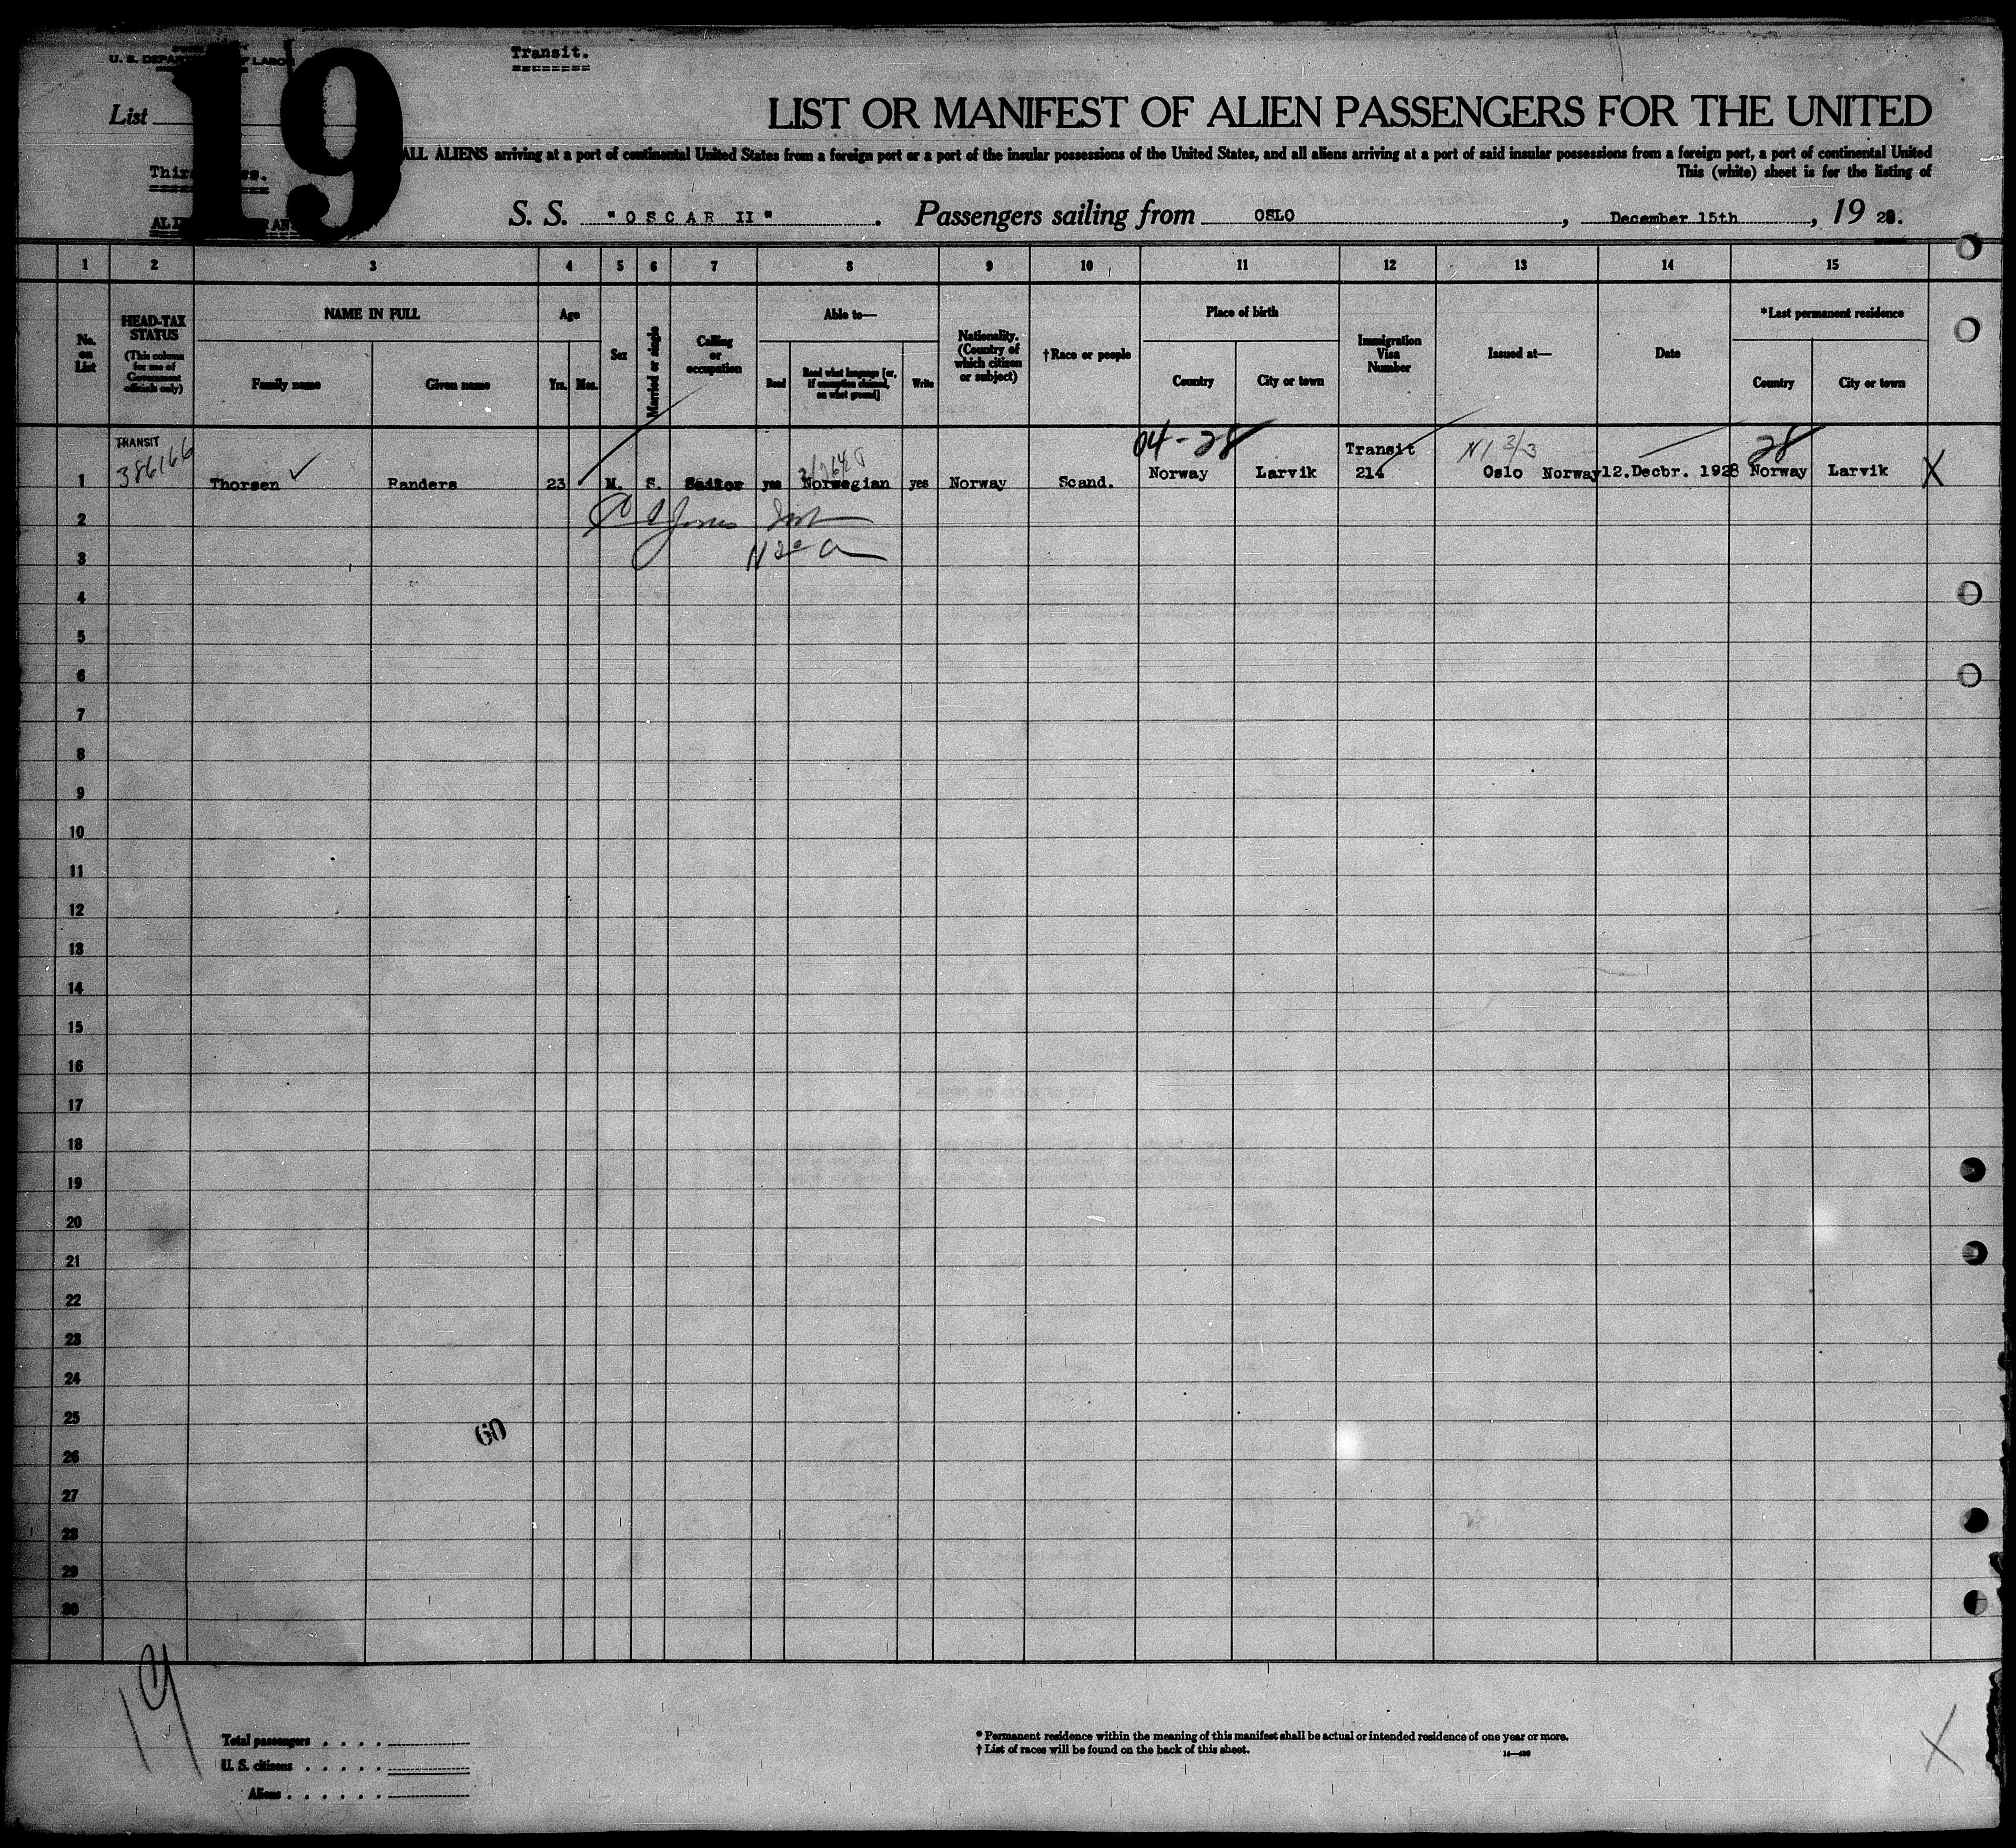 Transit.
U. S. DEPA LABOR
19
List
LIST OR MANIFEST OF ALIEN PASSENGERS FOR THE UNITED
ALL ALIENS arriving at a port of continental United States from a foreign port or a port of the insular possessions of the United States, and all aliens arriving at a port of said insular possessions from a foreign port, a port of continental United
This (white) sheet is for the listing of
S. S. "OSCAR II". Passengers sailing from OSLO, December 15th, 19 28.
1 2 3 4 5 6 7 8 9 10 11 12 13 14 15
No. on List
HEAD-TAX STATUS
(This column for use of Government officials only)
NAME IN FULL
Family name
Given name
Age
Yrs. Mos.
Sex
Married or single
Calling or occupation
Able to—
Read
Read what language [or, if exemption claimed, on what ground]
Write
Nationality. (Country of which citizen or subject)
†Race or people
Place of birth
Country
City or town
Immigration Visa Number
Issued at—
Date
*Last permanent residence
Country
City or town
TRANSIT
386166
04-28
Transit
N1 3/3
28
1 Thorsen Randers 23 M. S. Sailor yes Norwegian yes Norway Scand. Norway Larvik 214 Oslo Norway 12.Decbr. 1928 Norway Larvik X
2
3
4
5
6
7
8
9
10
11
12
13
14
15
16
17
18
19
20
21
22
23
24
25
60
26
27
28
29
30
19
Total passengers
U. S. citizens
Aliens
* Permanent residence within the meaning of this manifest shall be actual or intended residence of one year or more.
† List of races will be found on the back of this sheet.
X